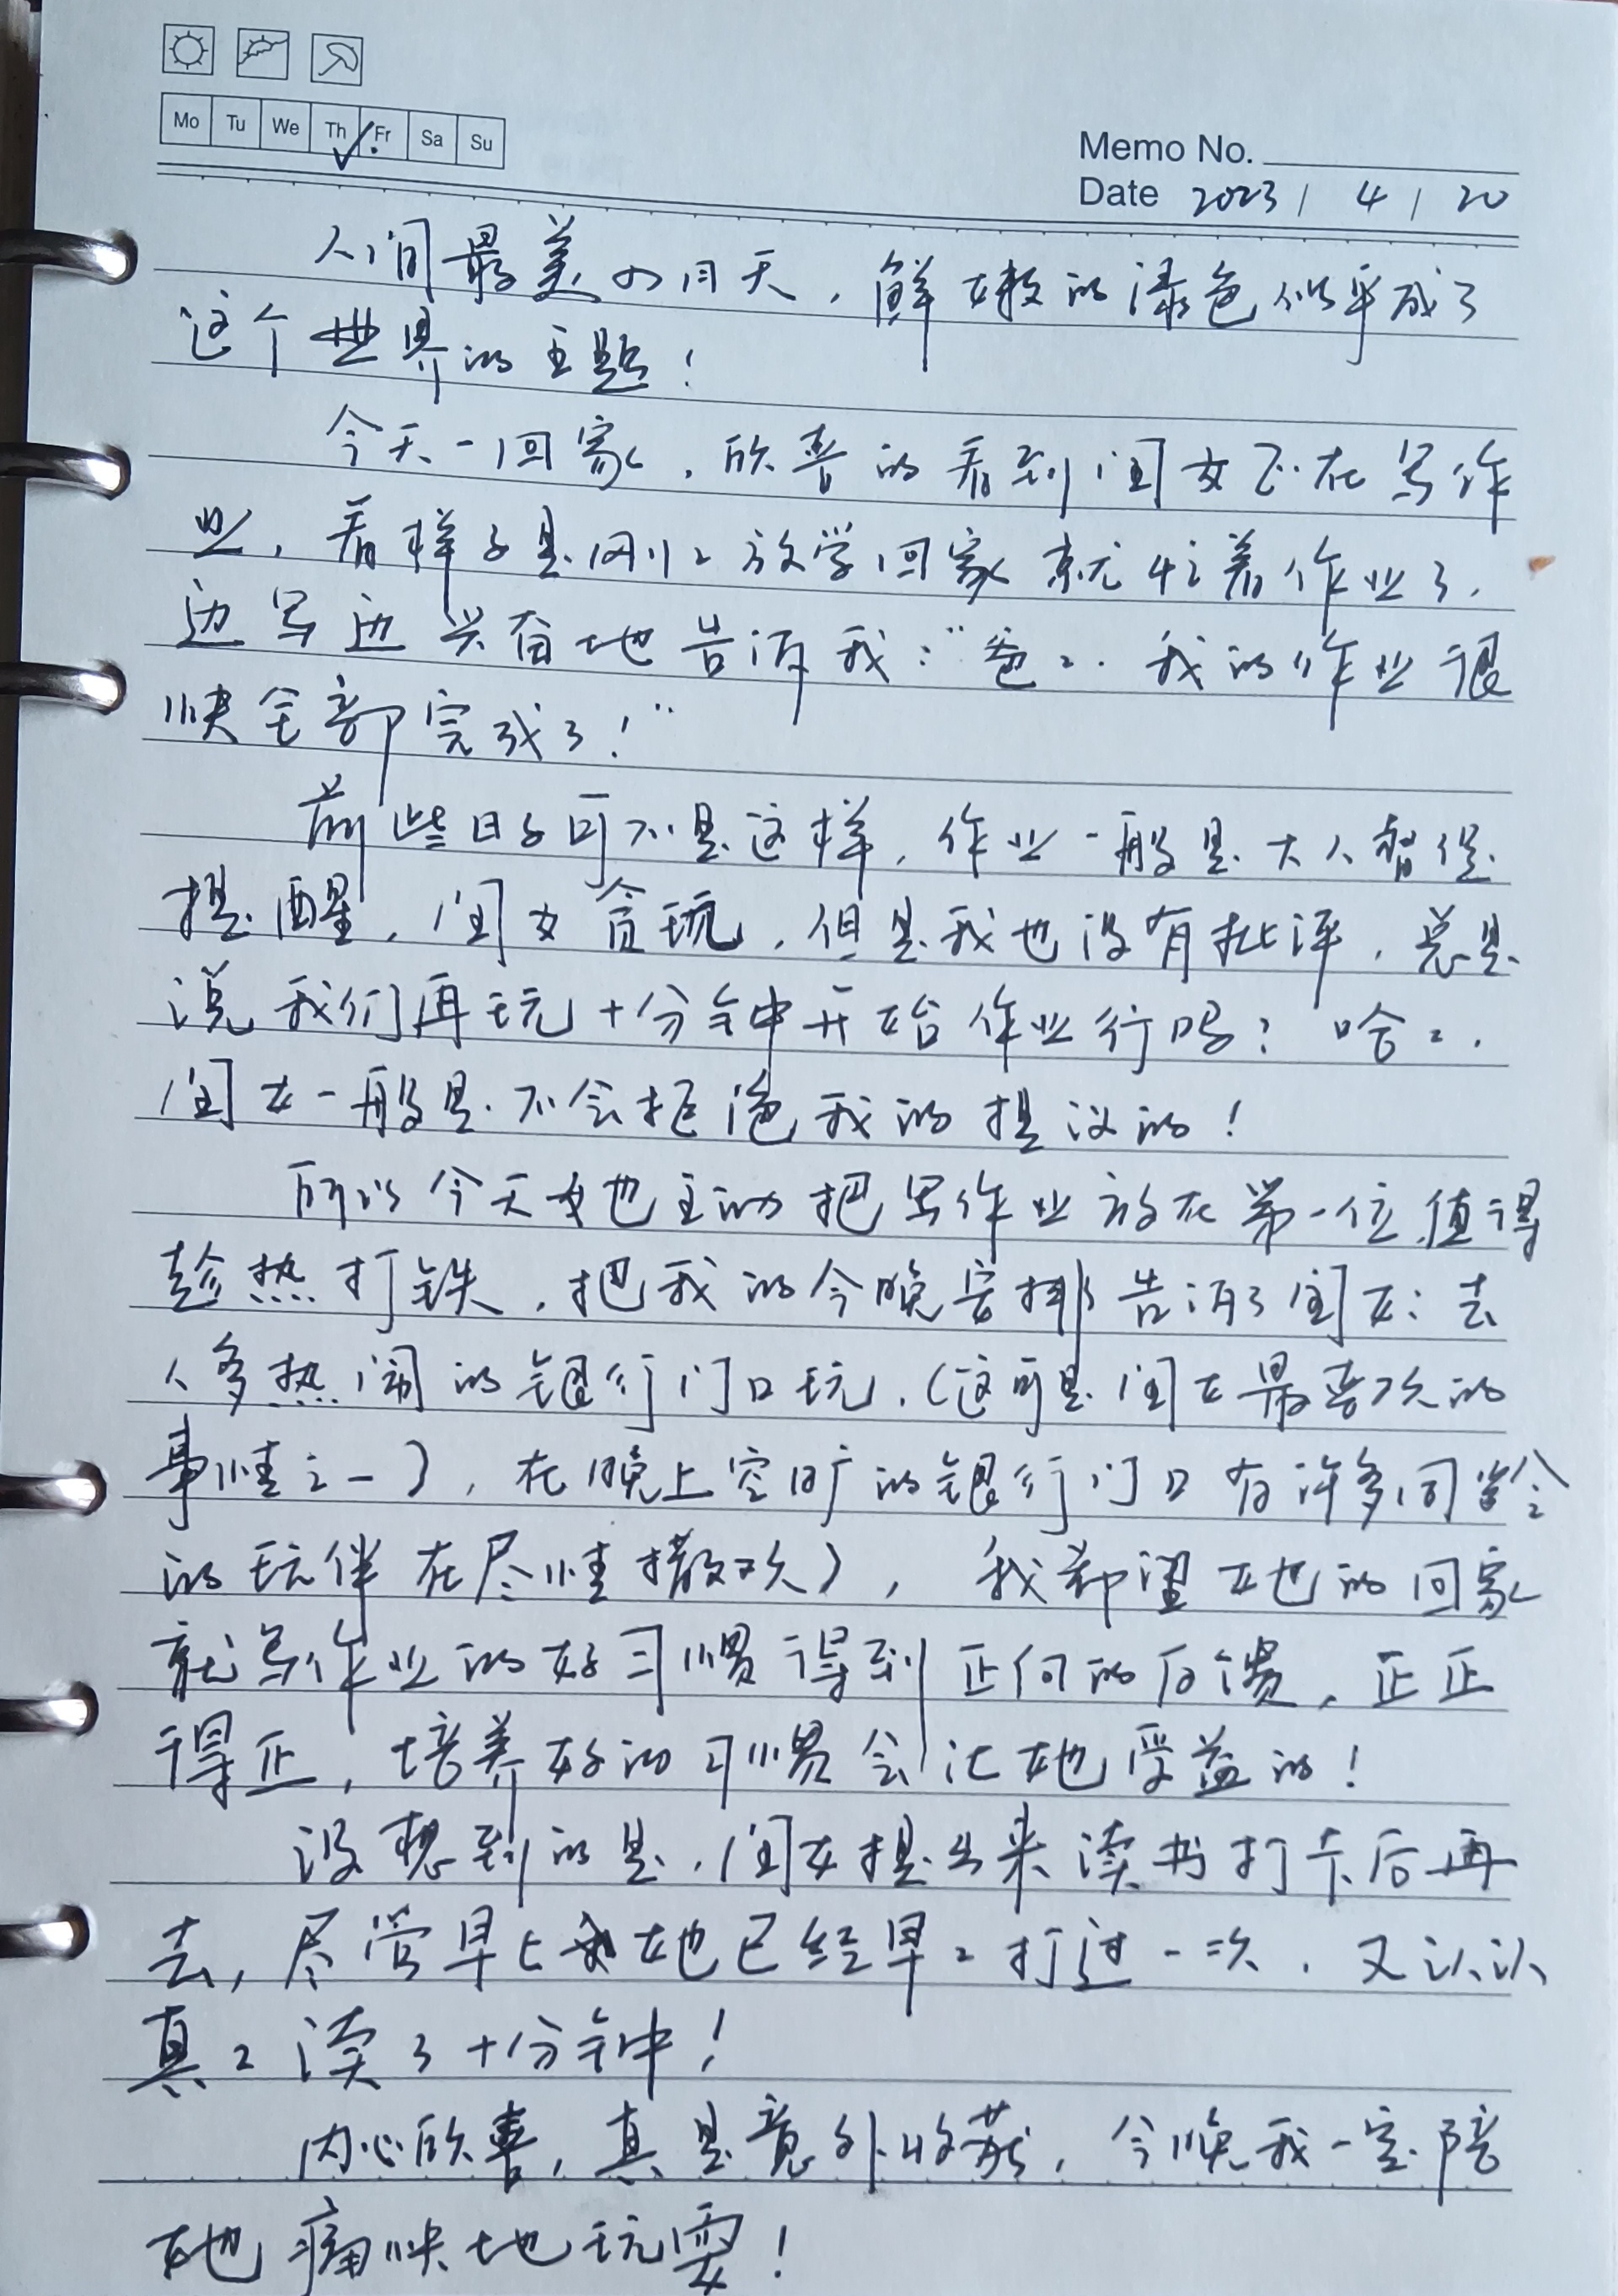 Mo Tu We Th Fr Sa Su
Memo No.
Date 2023 / 4 / 20
人间最美四月天，鲜嫩的绿色似乎成了
这个世界的主题！
今天一回家，欣喜的看到闺女正在写作
业，看样子是刚刚放学回家就忙着作业了，
边写边兴奋地告诉我：“爸爸，我的作业很
快全部完成了！”
前些日子可不是这样，作业一般是大人督促
提醒，闺女贪玩，但是我也没有批评，总是
说我们再玩十分钟开始作业行吗？哈哈，
闺女一般是不会拒绝我的提议的！
所以今天她主动把写作业放在第一位，值得
趁热打铁，把我的今晚安排告诉了闺女：去
人多热闹的银行门口玩，（这可是闺女最喜欢的
事情之一），在晚上空旷的银行门口有许多同龄
的玩伴在尽情撒欢），我希望她的回家
就写作业的好习惯得到正向的反馈，正正
得正，培养好的习惯会让她受益的！
没想到的是，闺女提出来读书打卡后再
去，尽管早上她已经早早打过一次，又认认
真真读了十分钟！
内心欣喜，真是意外收获，今晚我一定陪
她痛快地玩耍！